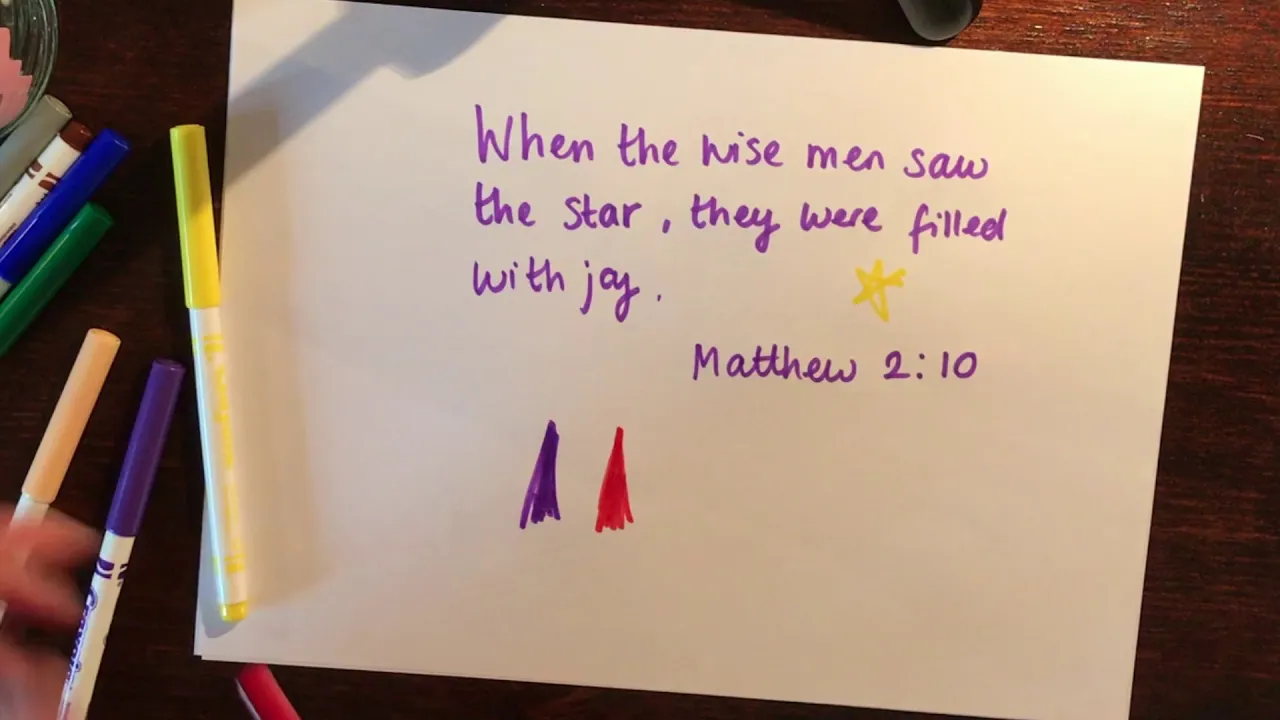 When the wise men saw
the star, they were filled
with joy.
Matthew 2:10